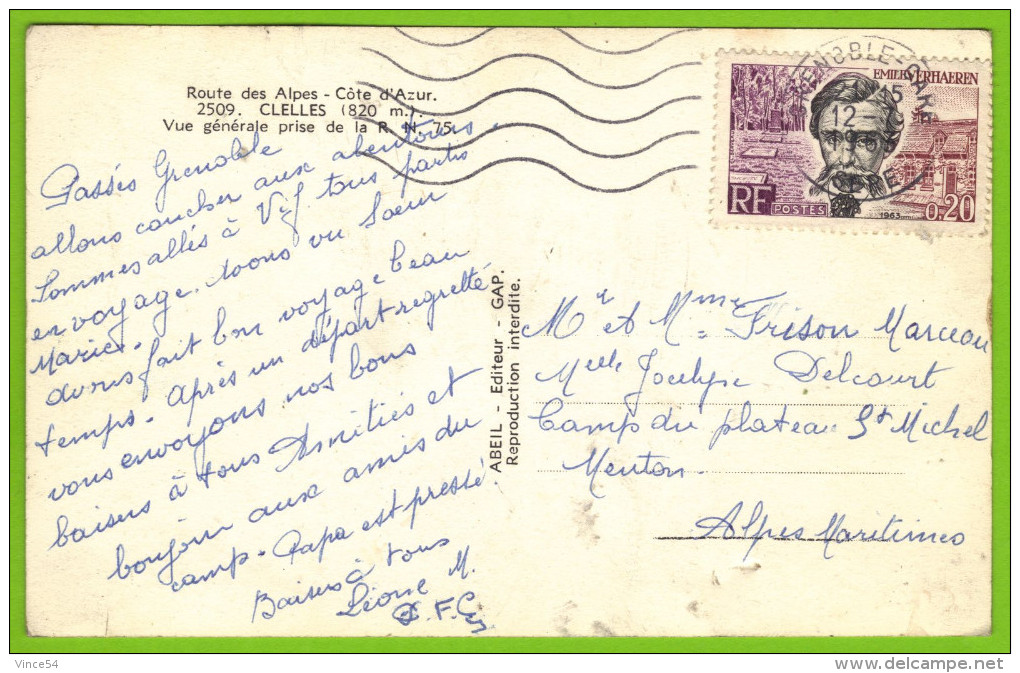 Route des Alpes - Côte d'Azur.
2509. CLELLES (820 m.).
Vue générale prise de la R. N. 75.
Passés Grenoble
allons coucher aux alentours.
Sommes allés à Vif tous partis
en voyage. Avons vu Soeur
Marie.
avons fait bon voyage beau
temps. Après un départ regretté
vous envoyons nos bons
baisers à tous Amitiés et
bonjour aux amis du
camp. Papa est pressé.
Baisers à tous
Léone M.
ABEIL - Editeur - GAP.
Reproduction interdite.
EMILE VERHAEREN
GRENOBLE-GARE
15
12
19
ISERE
RF
POSTES
1963
0,20
Mr et Mme Frison Marceau
Melle Jocelyne Delcourt
Camp du plateau St Michel
Menton.
Alpes Maritimes
Vince54
delcampe.net